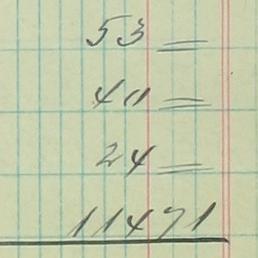 53 =
40 =
24 =
11471